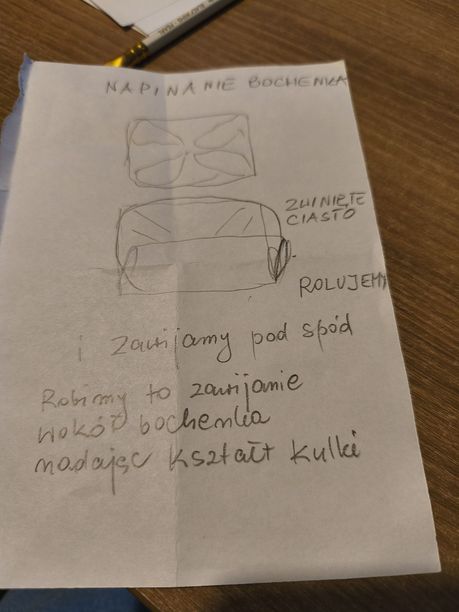 NAPINANIE BOCHENKA
ZWINIĘTE
CIASTO
ROLUJEMY
i zawijamy pod spód
Robimy to zawijanie
wokół bochenka
nadając kształt kulki